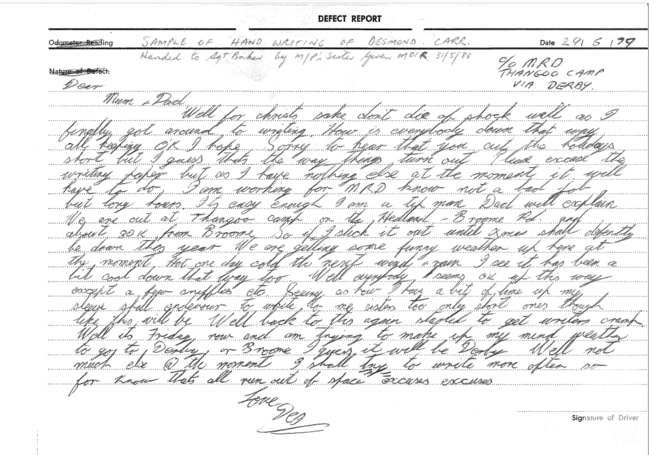 DEFECT REPORT
Odometer Reading SAMPLE OF HAND WRITING OF DESMOND. CARR. Date 29/5/79
Handed to Sgt by M/P's Sister 31/5/88
Nature of Defect: C/o MRD
THANGOO CAMP
VIA DERBY.
Dear
Mum & Dad
Well for christs sake dont die of shock well as I
finally got around to writing. How is everybody down that way
all keeping OK I hope. Sorry to hear that you cut the holidays
short but I guess thats the way things turn out. excuse the
writing paper but as I have nothing else at the moment it will
have to do, I am working for MRD know not a bad job
but long hours. Its easy enough I am a tip man Dad will explain
We are out at Thangoo camp on the Hedland - Broome Rd
about from Broome So if I stick it out until Xmas shall defently
be down this year We are getting some funny weather up here at
the moment. Hot one day cold the next wind & rain I see it has been a
bit cool down that way too. Well everybody seems ok up this way
except a few snyffles etc Seeing as how I have a bit of time up my
sleve shall endevour to write to my sisters too only short ones though
like this will be Well back to this again stoped to get writers cramp
Well its Friday now and am trying to make up my mind
to go to Derby or Broome I guess it will be Derby Well not
much else @ the moment I shall try to write more often so
for know thats all run out of space excuses excuses
Love
Des
Signature of Driver